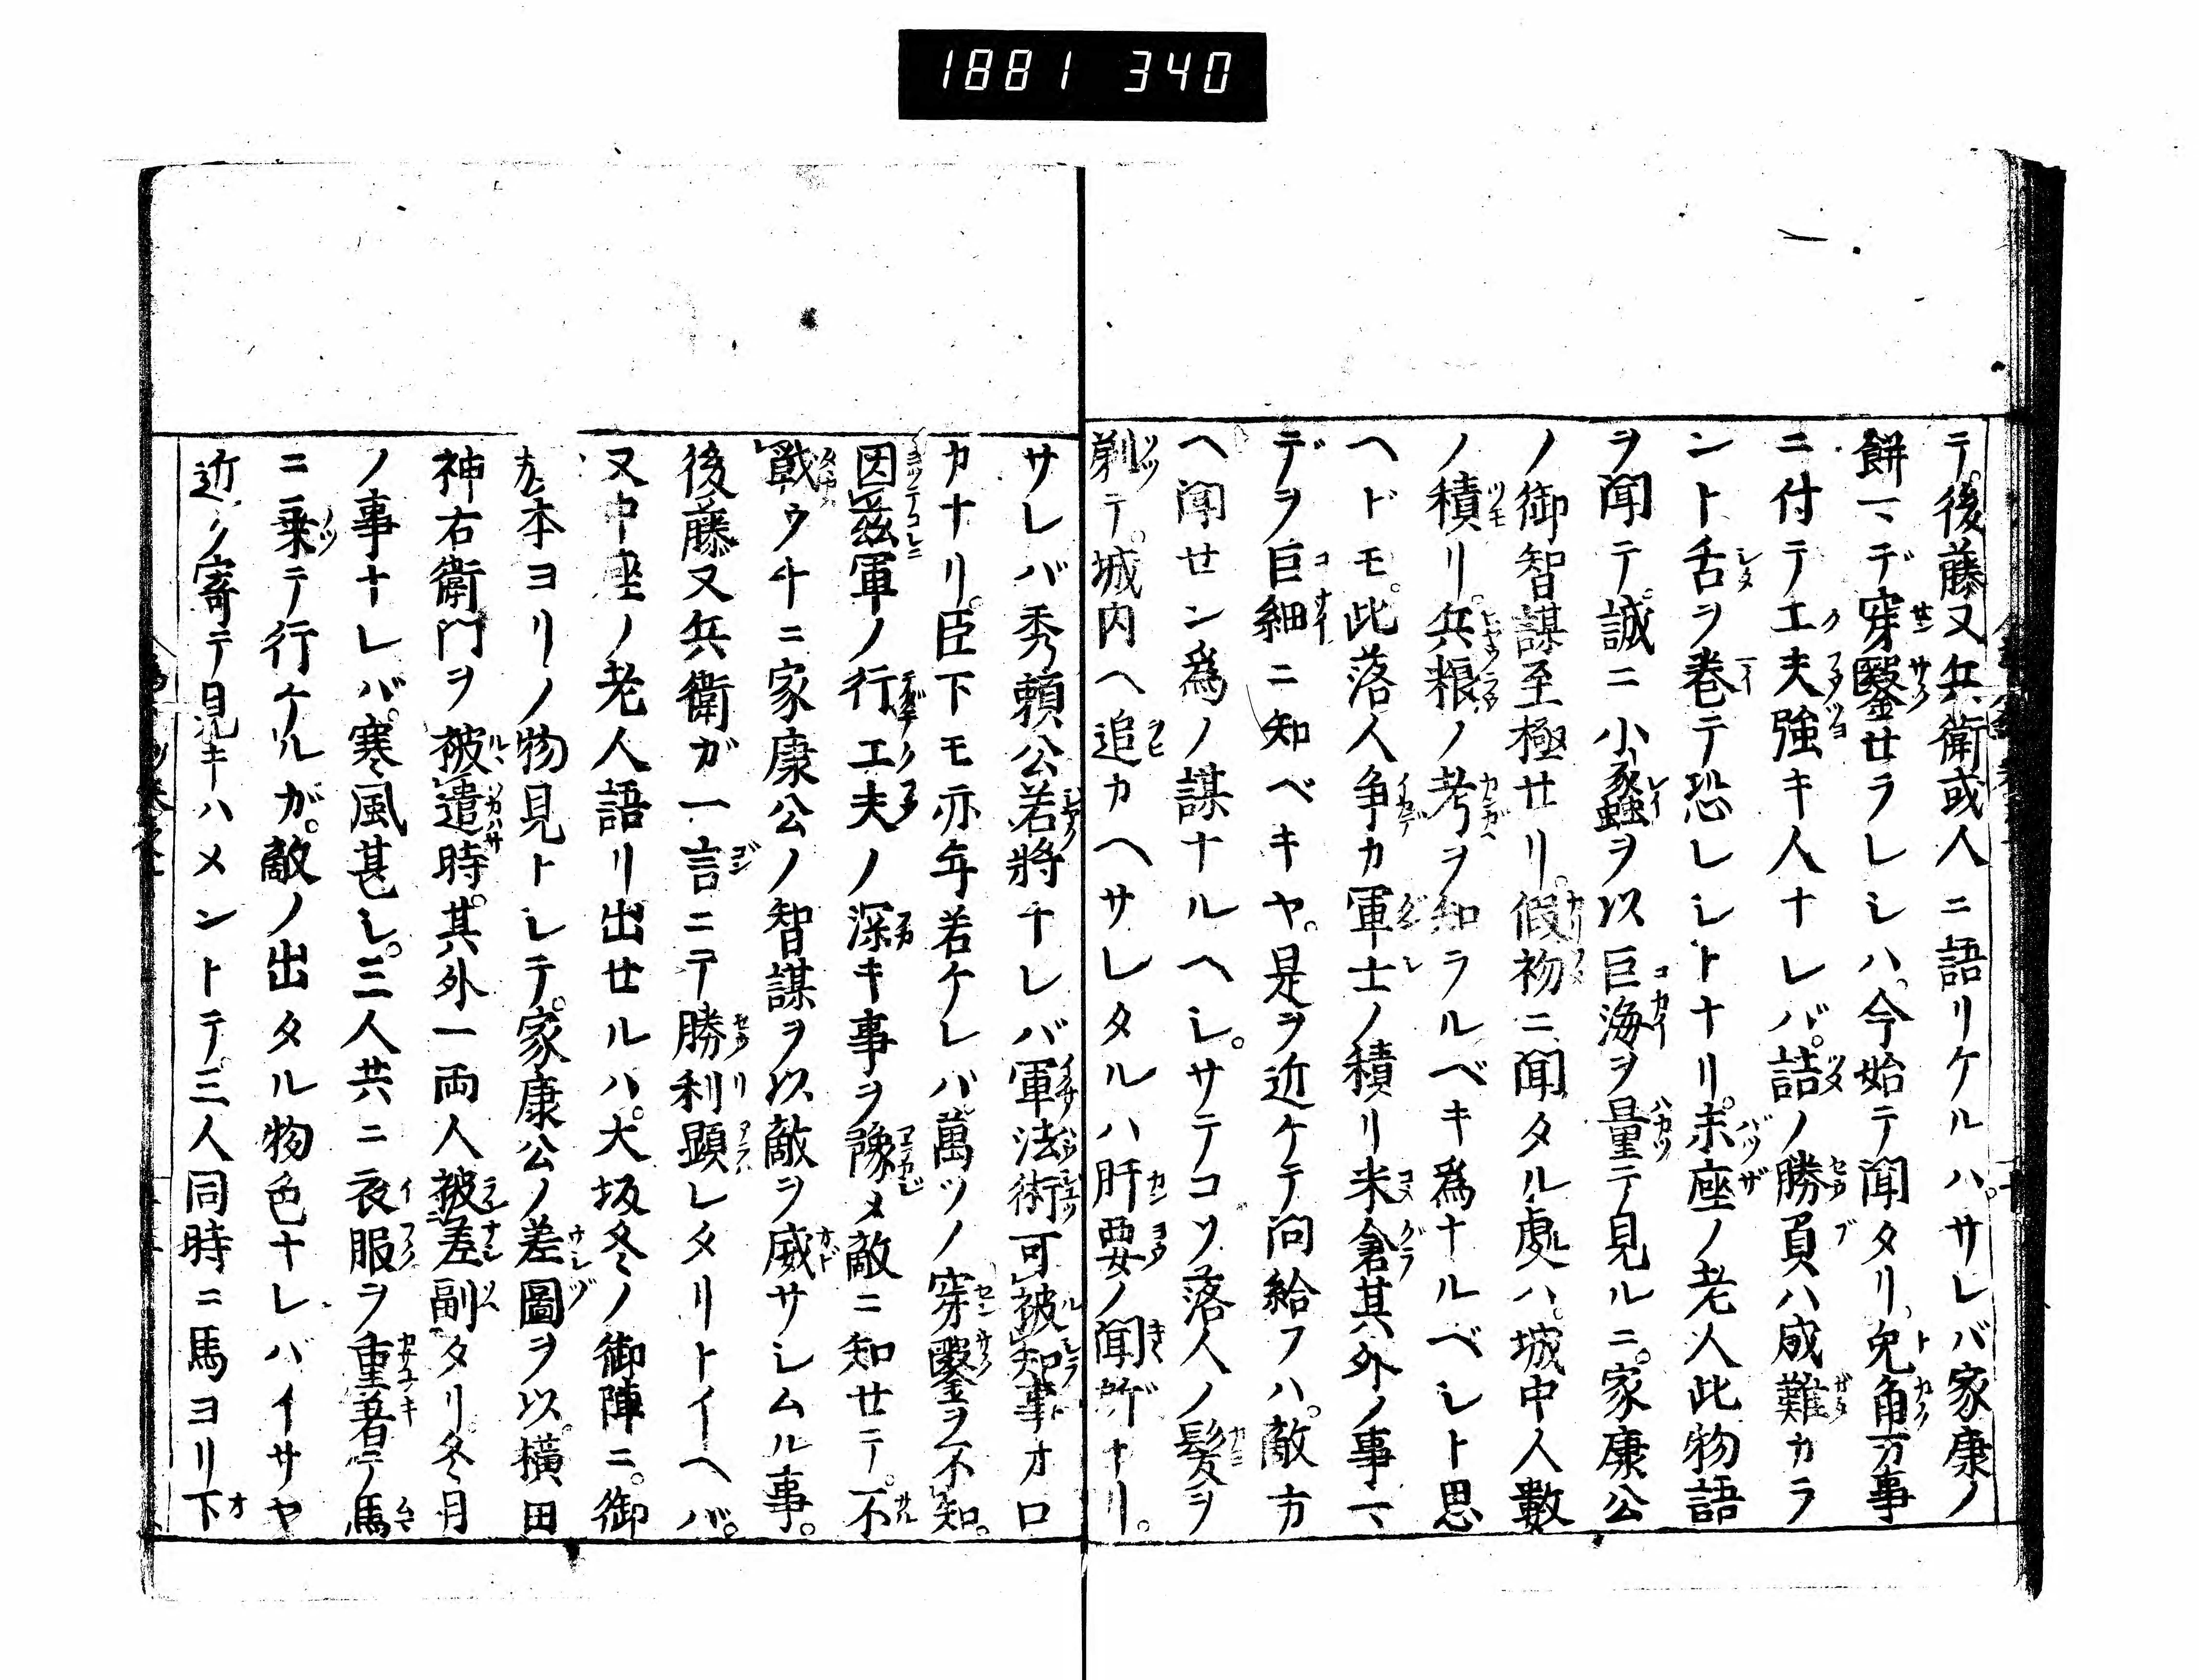 1881 340
テ。後藤又兵衛或人ニ語リケルハ。サレバ家康ノ
餅マデ穿鑿セラレシハ。今始テ聞タリ。兎角万事
ニ付テ工夫強キ人ナレバ。詰ノ勝負ハ成難カラ
ント舌ヲ巻テ恐レシトナリ。末座ノ老人此物語
ヲ聞テ。誠ニ小蠡ヲ以巨海ヲ量テ見ルニ。家康公
ノ御智謀至極セリ。假初ニ聞タル處ハ。城中人數
ノ積リ。兵粮ノ考ヲ知ラルベキ爲ナルベシト思
ヘドモ。此落人争カ軍士ノ積リ米倉其外ノ事マ
デヲ巨細ニ知ベキヤ。是ヲ近ケテ問給フハ。敵方
ヘ聞セン爲ノ謀ナルヘシ。サテコソ落人ノ髪ヲ
剃テ。城内ヘ追カヘサレタルハ肝要ノ聞所ナリ。
サレバ秀頼公若將ナレバ軍法術可被知事オロ
カナリ。臣下モ亦年若ケレバ萬ツノ穿鑿ヲ不知。
因茲軍ノ行工夫ノ深キ事ヲ豫メ敵ニ知セテ。不
戰ウチニ家康公ノ智謀ヲ以敵ヲ威サシムル事。
後藤又兵衛ガ一言ニテ勝利顕レタリトイヘバ。
又中座ノ老人語リ出セルハ。大坂冬ノ御陣ニ。御
旗本ヨリノ物見トシテ。家康公ノ差圖ヲ以。横田
神右衛門ヲ被遣時。其外一両人被差副タリ。冬月
ノ事ナレバ。寒風甚シ。三人共ニ衣服ヲ重着テ馬
ニ乗テ行ケルガ。敵ノ出タル物色ナレバイサヤ
近ク寄テ見キハメントテ。三人同時ニ馬ヨリ下